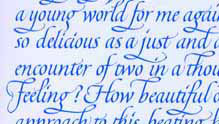 a young world for me again
so delicious as a just and
encounter of two in a
Feeling? How beautiful
approach to this beating